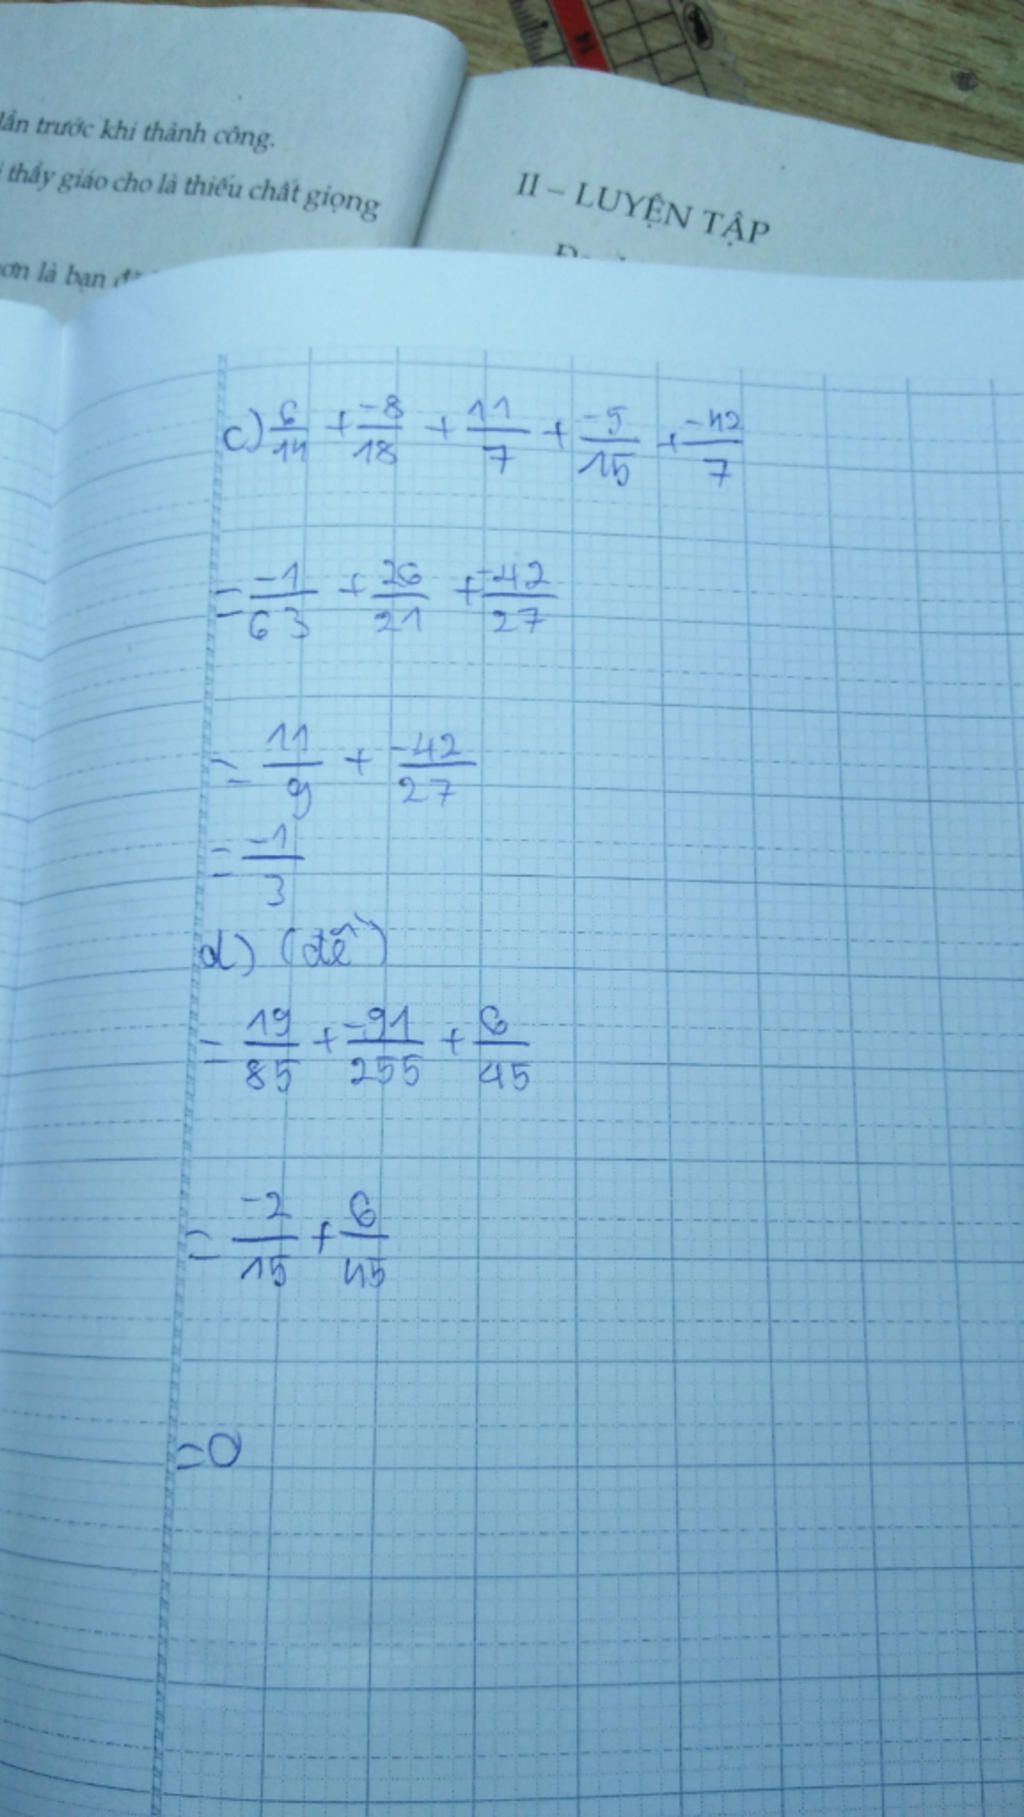 lần trước khi thành công.
thầy giáo cho là thiếu chất giọng
hơn là bạn
II – LUYỆN TẬP
c) 6/14 + -8/18 + 11/7 + -5/15 + -42/7
= -1/63 + 26/21 + -42/27
= 11/9 + -42/27
= -1/3
d) (đề)
= 19/85 + -91/255 + 6/45
= -2/15 + 6/45
= 0